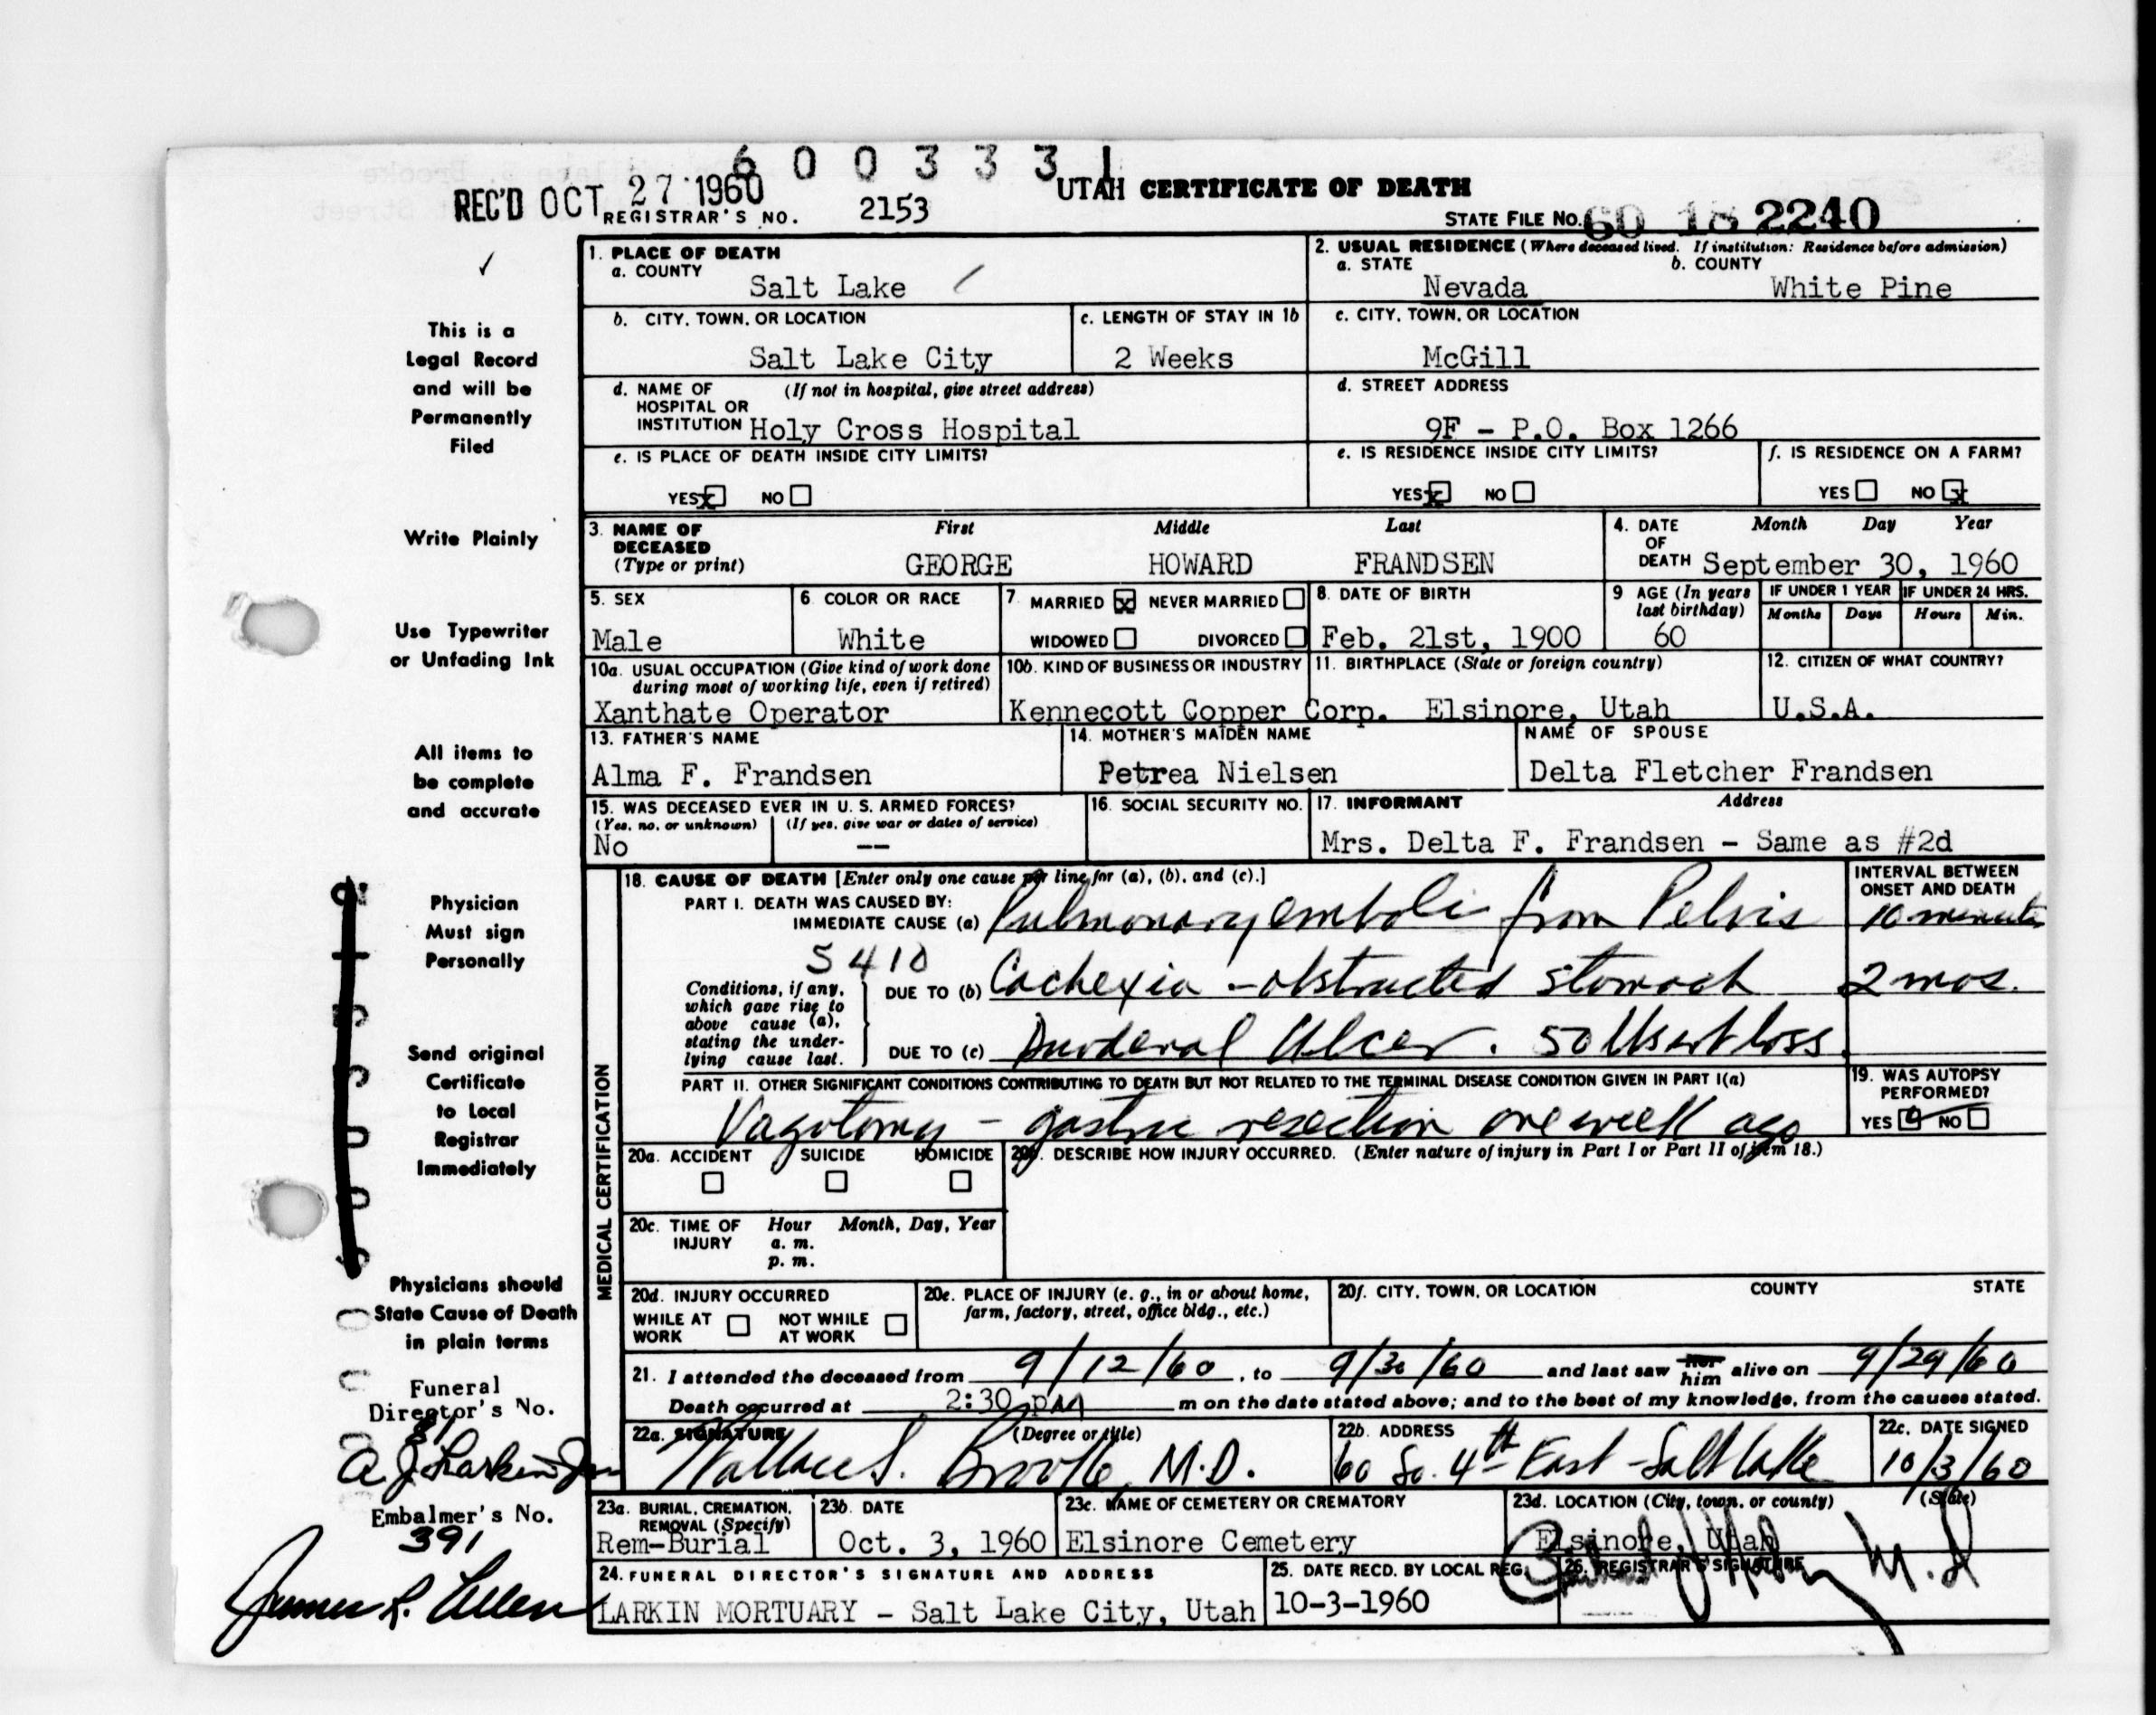 6 0 0 3 3 3 1
REC'D OCT 27 1960
UTAH CERTIFICATE OF DEATH
REGISTRAR'S NO. 2153
STATE FILE NO. 60 18 2240
✓
This is a
Legal Record
and will be
Permanently
Filed
Write Plainly
Use Typewriter
or Unfading Ink
All items to
be complete
and accurate
Physician
Must sign
Personally
Send original
Certificate
to Local
Registrar
Immediately
Physicians should
State Cause of Death
in plain terms
Funeral
Director's No.
81
A J Larkin Jr
Embalmer's No.
391
James R. Allen
1. PLACE OF DEATH
a. COUNTY
Salt Lake
2. USUAL RESIDENCE (Where deceased lived. If institution: Residence before admission)
a. STATE b. COUNTY
Nevada White Pine
b. CITY, TOWN, OR LOCATION
Salt Lake City
c. LENGTH OF STAY IN 1b
2 Weeks
c. CITY, TOWN, OR LOCATION
McGill
d. NAME OF (If not in hospital, give street address)
HOSPITAL OR
INSTITUTION Holy Cross Hospital
d. STREET ADDRESS
9F - P.O. Box 1266
e. IS PLACE OF DEATH INSIDE CITY LIMITS?
YES x NO
e. IS RESIDENCE INSIDE CITY LIMITS?
YES x NO
f. IS RESIDENCE ON A FARM?
YES NO x
3. NAME OF DECEASED (Type or print)
First Middle Last
GEORGE HOWARD FRANDSEN
4. DATE OF DEATH
Month Day Year
September 30, 1960
5. SEX
Male
6. COLOR OR RACE
White
7. MARRIED x NEVER MARRIED
WIDOWED DIVORCED
8. DATE OF BIRTH
Feb. 21st, 1900
9 AGE (In years last birthday)
60
IF UNDER 1 YEAR IF UNDER 24 HRS.
Months Days Hours Min.
10a. USUAL OCCUPATION (Give kind of work done
during most of working life, even if retired)
Xanthate Operator
10b. KIND OF BUSINESS OR INDUSTRY
Kennecott Copper Corp.
11. BIRTHPLACE (State or foreign country)
Elsinore, Utah
12. CITIZEN OF WHAT COUNTRY?
U.S.A.
13. FATHER'S NAME
Alma F. Frandsen
14. MOTHER'S MAIDEN NAME
Petrea Nielsen
NAME OF SPOUSE
Delta Fletcher Frandsen
15. WAS DECEASED EVER IN U. S. ARMED FORCES?
(Yes, no, or unknown) (If yes, give war or dates of service)
No --
16. SOCIAL SECURITY NO.
17. INFORMANT Address
Mrs. Delta F. Frandsen - Same as #2d
MEDICAL CERTIFICATION
18. CAUSE OF DEATH [Enter only one cause per line for (a), (b), and (c).]
INTERVAL BETWEEN
ONSET AND DEATH
PART I. DEATH WAS CAUSED BY:
IMMEDIATE CAUSE (a) Pulmonary emboli from Pelvis 10 minutes
5410
Conditions, if any,
which gave rise to
above cause (a),
stating the under-
lying cause last.
DUE TO (b) Cachexia - obstructed stomach 2 mos.
DUE TO (c) Duodenal Ulcer. 50 lbs wt loss.
PART II. OTHER SIGNIFICANT CONDITIONS CONTRIBUTING TO DEATH BUT NOT RELATED TO THE TERMINAL DISEASE CONDITION GIVEN IN PART I(a)
Vagotomy - gastric resection one week ago
19. WAS AUTOPSY
PERFORMED?
YES NO
20a. ACCIDENT SUICIDE HOMICIDE
20b. DESCRIBE HOW INJURY OCCURRED. (Enter nature of injury in Part I or Part II of item 18.)
20c. TIME OF INJURY
Hour Month, Day, Year
a. m.
p. m.
20d. INJURY OCCURRED
WHILE AT WORK NOT WHILE AT WORK
20e. PLACE OF INJURY (e. g., in or about home,
farm, factory, street, office bldg., etc.)
20f. CITY, TOWN, OR LOCATION COUNTY STATE
21. I attended the deceased from 9/12/60, to 9/30/60 and last saw her him alive on 9/29/60
Death occurred at 2:30 pM m on the date stated above; and to the best of my knowledge, from the causes stated.
22a. SIGNATURE (Degree or title)
Wallace S. Brooke, M.D.
22b. ADDRESS
60 So. 4th East - Salt Lake
22c. DATE SIGNED
10/3/60
23a. BURIAL, CREMATION,
REMOVAL (Specify)
Rem-Burial
23b. DATE
Oct. 3, 1960
23c. NAME OF CEMETERY OR CREMATORY
Elsinore Cemetery
23d. LOCATION (City, town, or county) (State)
Elsinore, Utah
24. FUNERAL DIRECTOR'S SIGNATURE AND ADDRESS
LARKIN MORTUARY - Salt Lake City, Utah
25. DATE RECD. BY LOCAL REG.
10-3-1960
26. REGISTRAR'S SIGNATURE
M.D